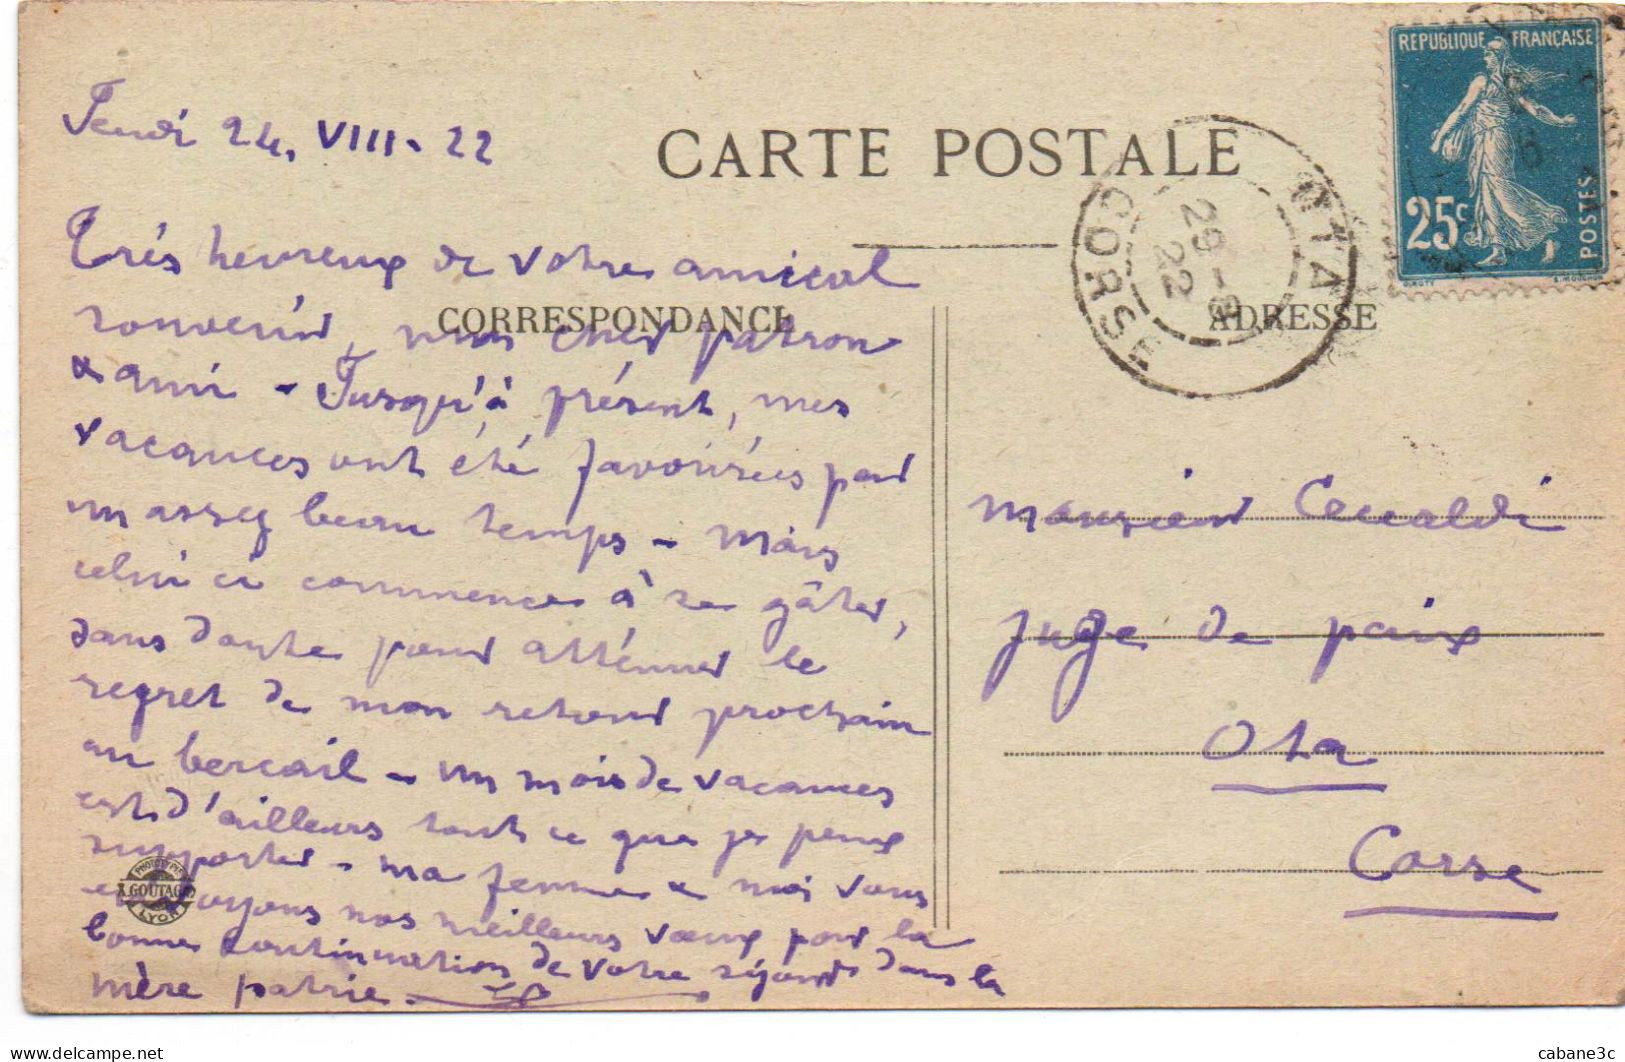 Jeudi 24. VIII. 22
CARTE POSTALE
CORRESPONDANCE
Très heureux de votre amical
souvenir, mon cher patron
& ami - Jusqu'à présent, mes
vacances ont été favorisées par
un assez beau temps - Mais
celui ci commence à se gâter,
sans doute pour atténuer le
regret de mon retour prochain
au bercail - un mois de vacances
est d'ailleurs tout ce que je peux
supporter - Ma femme & moi vous
envoyons nos meilleurs vœux pour la
bonne continuation de votre séjour dans la
mère patrie.
PHOTOTYPIE
X GOUTAGNY
LYON
REPUBLIQUE FRANÇAISE
25c
POSTES
OTA
29 - 8
22
CORSE
ADRESSE
Monsieur Ceccaldi
Juge de paix
Ota
Corse
cabane3c